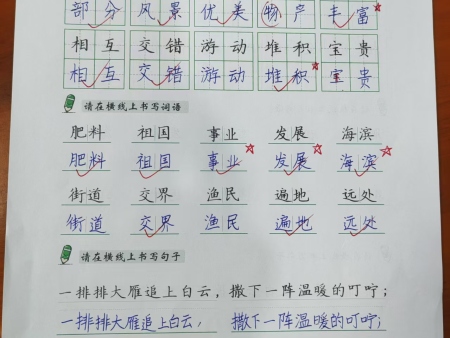 部分 风景 优美 物产 丰富
相互 交错 游动 堆积 宝贵
相互 交错 游动 堆积 宝贵
请在横线上书写词语
肥料 祖国 事业 发展 海滨
肥料 祖国 事业 发展 海滨
街道 交界 渔民 遍地 远处
街道 交界 渔民 遍地 远处
请在横线上书写句子
一排排大雁追上白云，撒下一阵温暖的叮咛；
一排排大雁追上白云，撒下一阵温暖的叮咛；